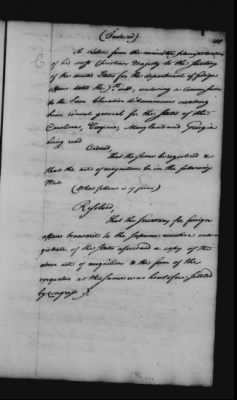 (Indorsed)
A letter from the minister plenipotentiary
of his most Christian Majesty to the Secretary
of the United States for the department of foreign
affairs dated the 7th ult. enclosing a commission
to the Sieur
him consul general for the States of the
Carolinas, Virginia, Maryland and Georgia
being read
Ordered,
That the same be registered &
that the act of recognition be in the following
Words
(What follows is a form)
Resolved,
That the Secretary for foreign
affairs transmit to the supreme executive ma-
gistrate of the States aforesaid a copy of the
above act of recognition & the form of the
exequatur as the same was heretofore settled
by Congress